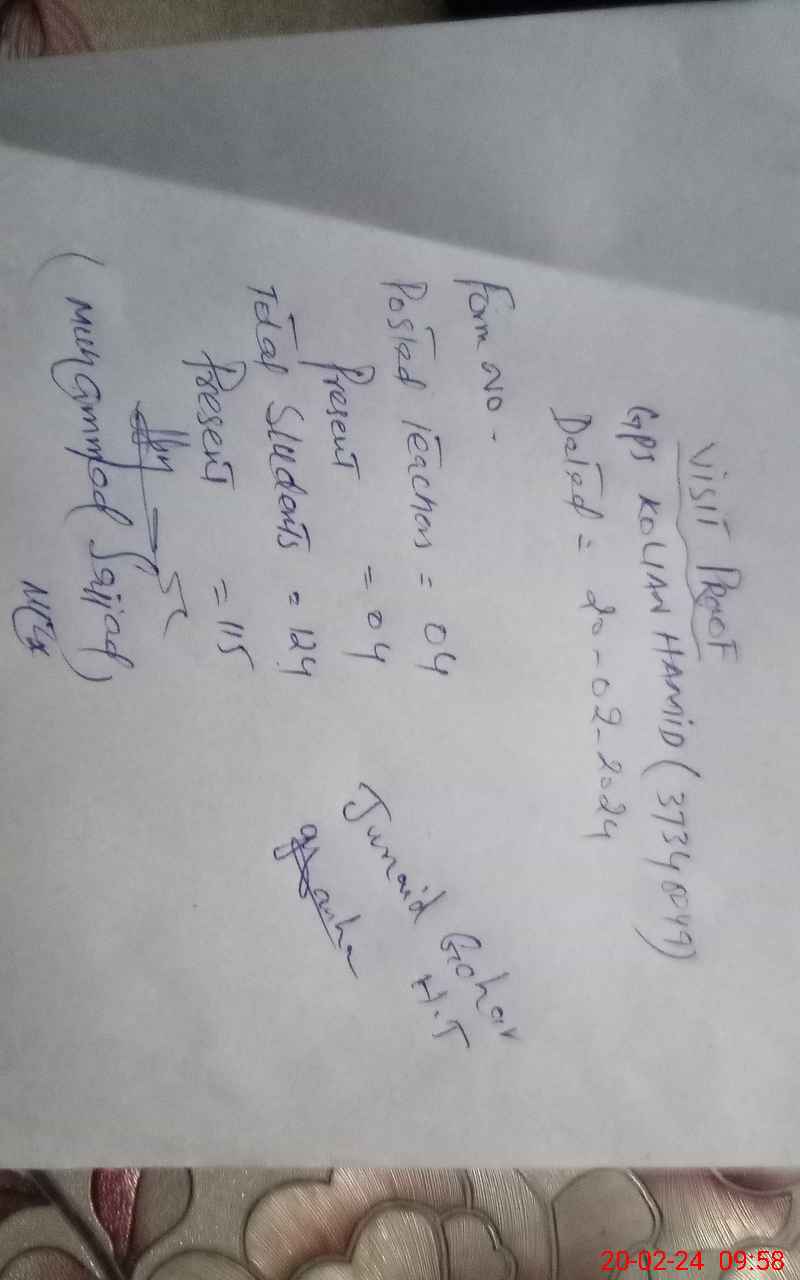 VISIT PROOF
GPS KOLIAN HAMID (37340049)
Dated = 20-02-2024
Form No.
Posted Teachers = 04
Present = 04
Total Students = 124
Present = 115
Junaid Gohar
H.T
(Muhammad Sajjad)
20-02-24 09:58